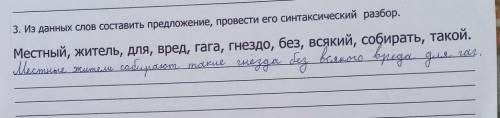 3. Из данных слов составить предложение, провести его синтаксический разбор.
Местный, житель, для, вред, гага, гнездо, без, всякий, собирать, такой.
Местные жители собирают такие гнезда без всякого вреда для гаг.